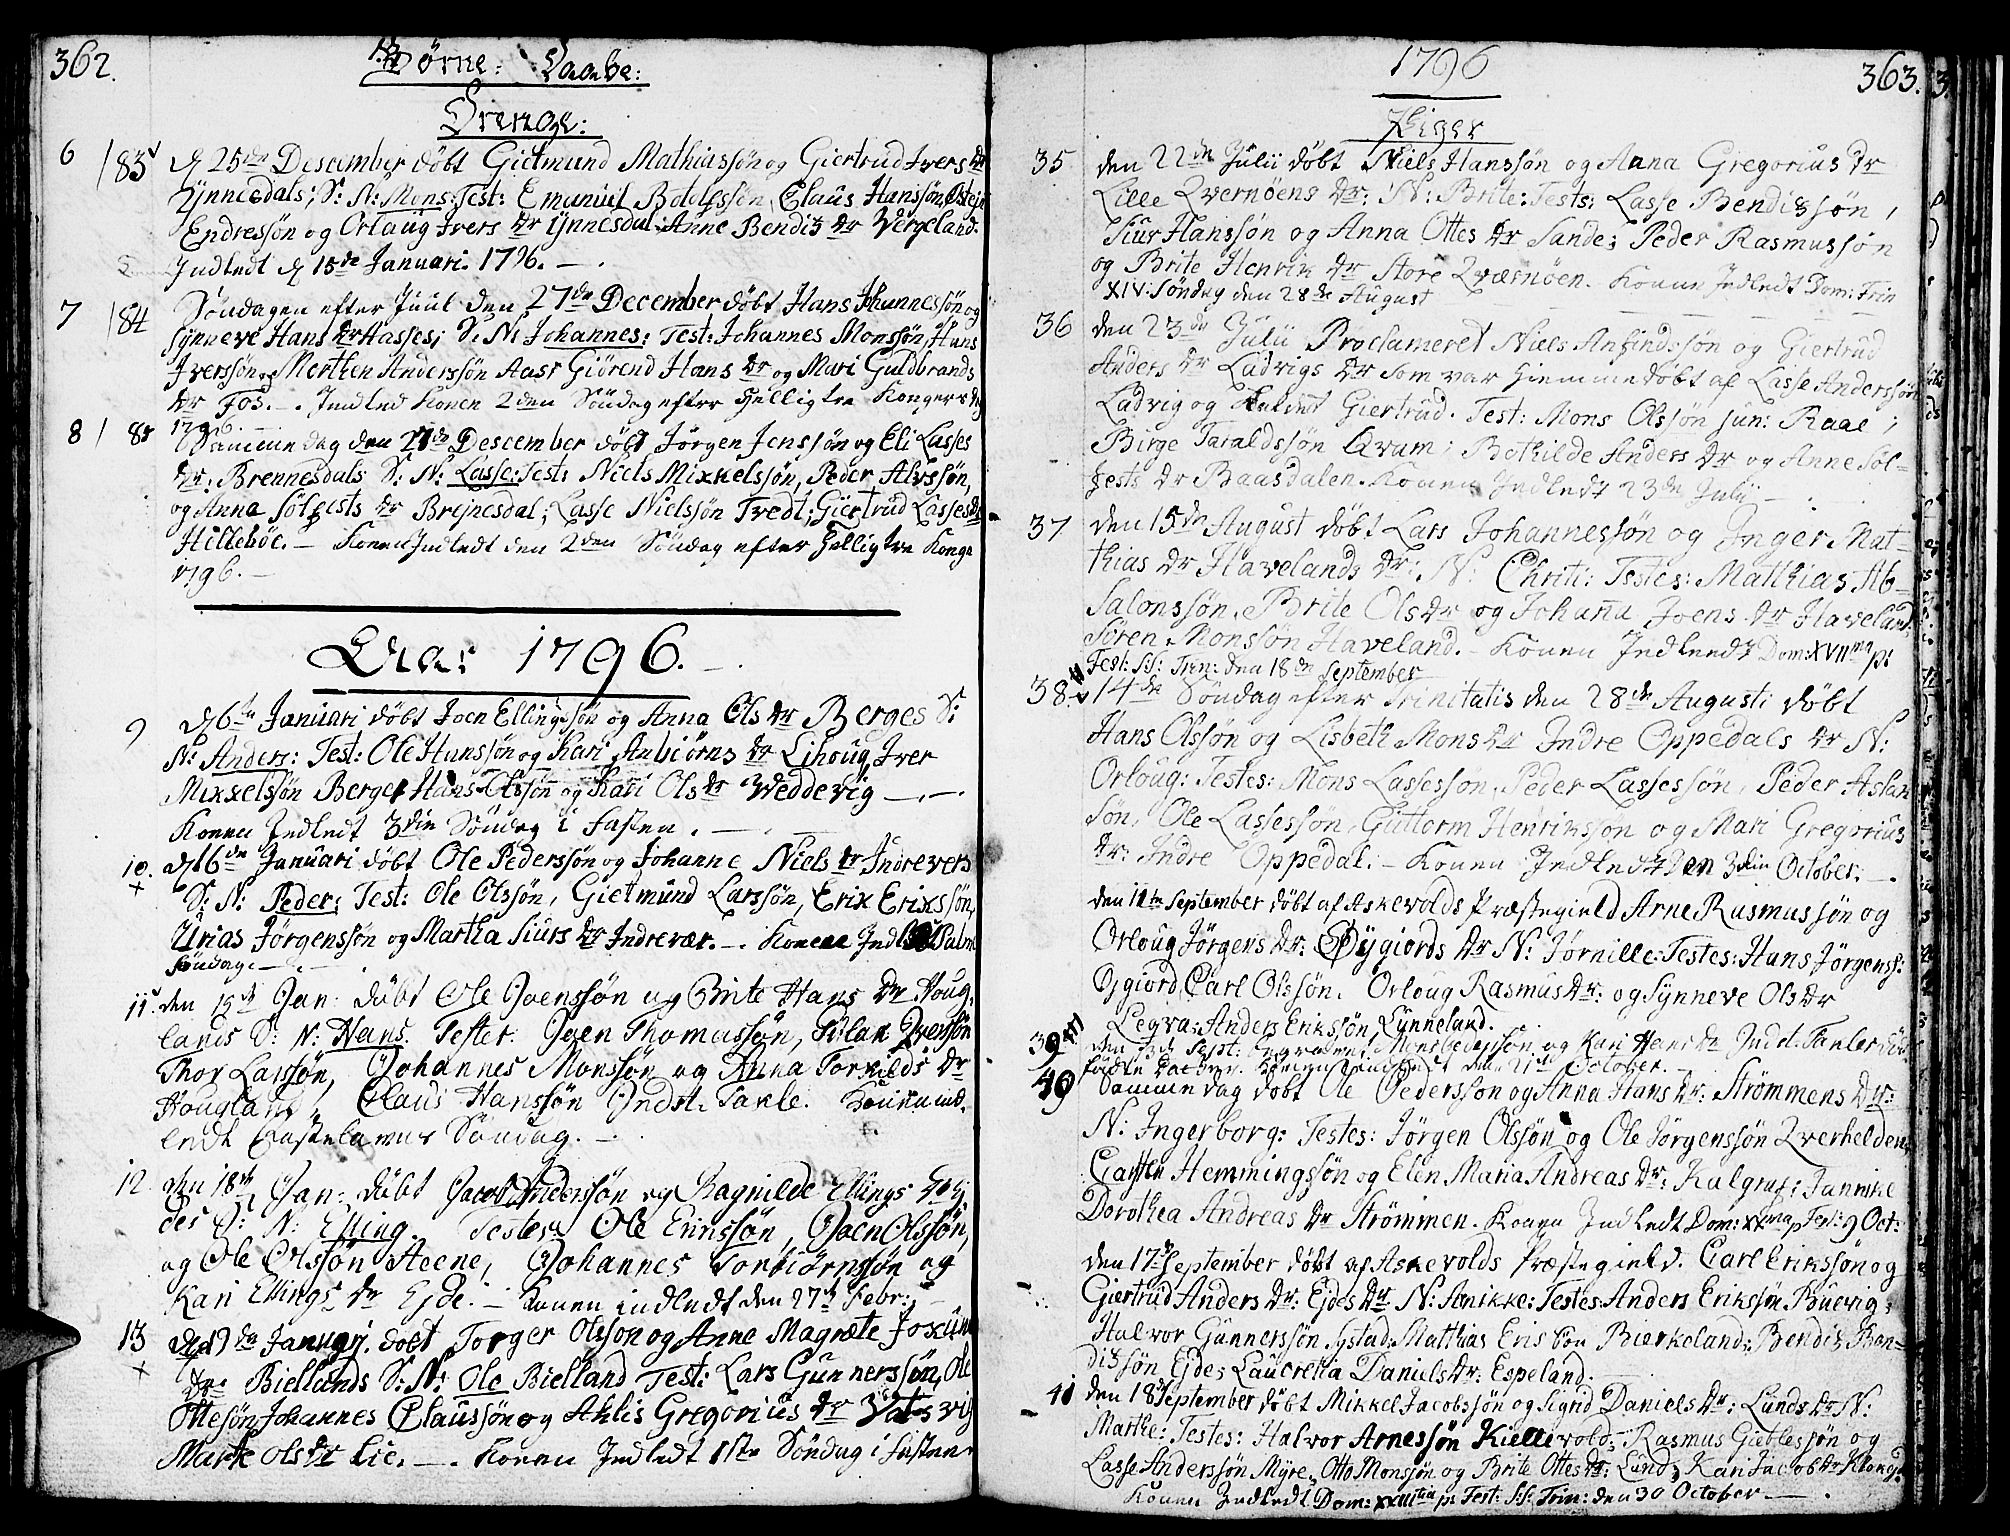 362.
Børne: Daabe:
Drenge:
6 / 83 d 25de Descember døbt Gietmund Mathiassøn og Giertrud Ivers dr
Ynnesdals; S: N: Mons: Test: Emanuel Botolfssøn, Claus Hanssøn, Ostein
Endressøn og Orlaug Ivers dr Ynnesdal; Anne Bendix dr Vergeland.
Indledt d 15de Januari. 1796. —.
7 / 84 Søndagen efter Juul den 27de December døbt Hans Johannessøn og
Synneve Hans dr Hasses; S: N: Johannes: Test: Johannes Monssøn, Hans
Iverssøn og Morthen Anderssøn Aasr Giørend Hans dr og Mari Guldbrands
dr Fos. —. Indled Konen 2den Søndag efter Hellig tre Kongers dag
1796. —
8 / 85 Samme dag den 27de Descember døbt Jørgen Jenssøn og Eli Lasses
dr: Brennesdals S: N: Lasse: Test: Niels Mikkelssøn, Peder Alvssøn,
og Anna Sølfests dr Brejnesdal; Lasse Nielssøn Tredt; Giertrud Lasses dr
Hillebøe. — Konen Indledt den 2den Søndag efter Hellig tre Konge
1796. —
Aar 1796. —.
9 d 6te Januari døbt Joen Ellingssøn og Anna Ols dr Berges S:
N: Anders: Test: Ole Hanssøn og Kari Anbiørns dr Lihoug, Iver
Mikkelssøn Berge, Hans Olssøn og Kari Ols dr Weddevig —.—.
Konen Indledt 3die Søndag i Fasten. —.
10. + d 16de Januari døbt Ole Pederssøn og Johanne Niels dr Indrevers
S: N: Peder: Test: Ole Olssøn, Gietmund Larssøn, Erik Erikssøn,
Urias Jørgenssøn og Martha Siurs dr Indrevær. —. Konen Indledt Palm
søndag. —.
11. den 15de Jan: døbt Ole Joenssøn og Brite Hans dr Houg,
lands S: N: Hans. Testes: Joen Thomassøn, Iverssøn
Thor Larssøn, Johannes Monssøn og Anna Torkilds dr
Hougland, Claus Hanssøn Indst. Takle. Konen ind,
ledt Fastelavns Søndag. —
12. den 18de Jan: døbt Jacob Anderssøn og Ragnilde Ellings dr Ej
des S: N: Elling. Testes: Ole Erikssøn, Joen Olssøn,
og Ole Olssøn Steene, Johannes Torbiørnssøn og
Kari Ellings dr Ejde. — Konen indledt den 27de Febr: —
13 + d 19de Januarj. døbt Torger Olsson og Anne Magnete Joxum
dr: Biellands S: N: Ole Bielland Test: Lars Gunnerssøn, Ole
Ottesøn, Johannes Claussøn og Ahlis Gregorius dr
Marte Ols dr Lie. —. Konen Indledt 1ste Søndag i Fasten
1796
363.
Piger
35 den 22de Julii døbt Niels Hanssøn og Anna Gregorius dr
Lille Qvernøens dr: N: Brite: Tests: Lasse Bendixsøn,
Siur Hanssøn og Anna Ottes dr Sande; Peder Rasmussøn
og Brite Henrik dr Store Qværnøen. Konen Indledt Dom: Trin
XIV: Søndag den 28de August
36 den 23de Julii Proclameret Niels Anfindssøn og Giertrud
Anders dr Ladvigs dr som var hiemmedøbt af Lasse Anderssøn
Ladvig og kaldet Giertrud. Test: Mons Olssøn jun: Raae;
Birge Taraldssøn Qvam; Bothilde Anders dr og Anne Søl-
fests dr Baasdalen. Konen Indledt 23de Julii —
37 den 15de August døbt Lars Johannessøn og Inger Mat-
thias dr Havelands dr: N: Christi: Testes: Matthias Ab-
salonssøn, Brite Ols dr og Johana Joens dr Haveland,
Søren Monssøn Haveland. — Konen Indledt Dom: XVIIma p:
Fest: S:S: Trin: den 18de September
38. 14de Søndag efter Trinitatis den 28de Augusti døbt
Hans Olssøn og Lisbeth Mons dr Indre Oppedals dr N:
Orloug: Testes: Mons Lassessøn, Peder Lassessøn, Peder Aslak
søn, Ole Lassessøn, Guttorm Henrikssøn og Mari Gregorius
dr: Indre Oppedal. — Konen Indledt den 3die October. —.
den 11te September døbt af Askevolds Præstegield Arne Rasmussøn og
Orloug Jørgens dr: Øygiords dr N: Jørnille: Testes: Hans Jørgenss:
Øjgiord, Carl Olssøn. Orloug Rasmus dr: og Synneve Ols dr
Legva: Anders Eriksøn Lünneland.
39 den 13de Sept: begravet Mons Pederssøn og Kari Hans dr Indst. Takles død,
fødte Datter. Konen indledt den 21de October. —
40 Samme dag døbt Ole Pederssøn og Anna Hans dr: Strömmens dr:
N: Ingerborg: Testes: Jørgen Olssøn og Ole Jørgenssøn Qverhelden,
Carsten Hemmingsøn og Elen Maria Andreas dr: Kalgraf; Jannike
Dorothea Andreas dr Strömmen. Konen Indledt Dom: XXma p Fest: 9 Oct:
den 17de September døbt af Askevolds Præstegield. Carl Erikssøn og
Giertrud Anders dr: Ejdes dr N: Anikke: Testes: Anders Erikssøn Buevig;
Halvor Gunnerssøn Systad; Matthias Eriksøn Bierkeland; Bendix Ben-
dixsøn Ejde; Laucretia Daniels dr: Espeland.
41 den 18de September døbt Mikkel Jacobssøn og Sigrid Daniels dr: Lunds dr N:
Marthe: Testes: Halvor Arnessøn Kiellevold; Rasmus Gietlessøn og
Lasse Anderssøn Myre, Otto Monssøn og Brite Ottes dr: Lund; Kari Jacobs dr
Konen Indledt Dom: XXIIItia p: Fest: S:S: Trin: den 30 October —.